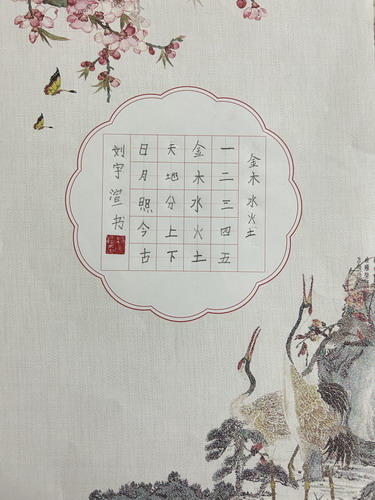 金木水火土
一二三四五
金木水火土
天地分上下
日月照今古
刘宇渲书